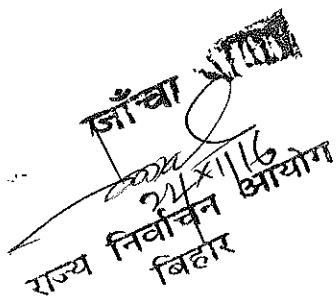 जाँचा
24/XI/16
राज्य निर्वाचन आयोग
बिहार